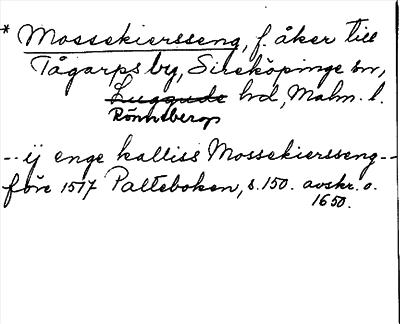 * Mossekiersseng, f. åker till
Tågarps by, Sireköpinge sn,
Luggude hd, Malm. l.
Rönneberga
-- ij enge kalliss Mossekiersseng --
före 1517 Palteboken, s. 150. avskr. o.
1650.